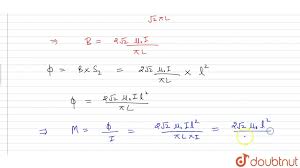 √2 πL
⇒ B = 2√2 μ₀ I / πL
ϕ = B × S₂ = 2√2 μ₀ I / πL × l²
ϕ = 2√2 μ₀ I l² / πL
⇒ M = ϕ / I = 2√2 μ₀ I l² / πL × I = 2√2 μ₀ l²
doubtnut